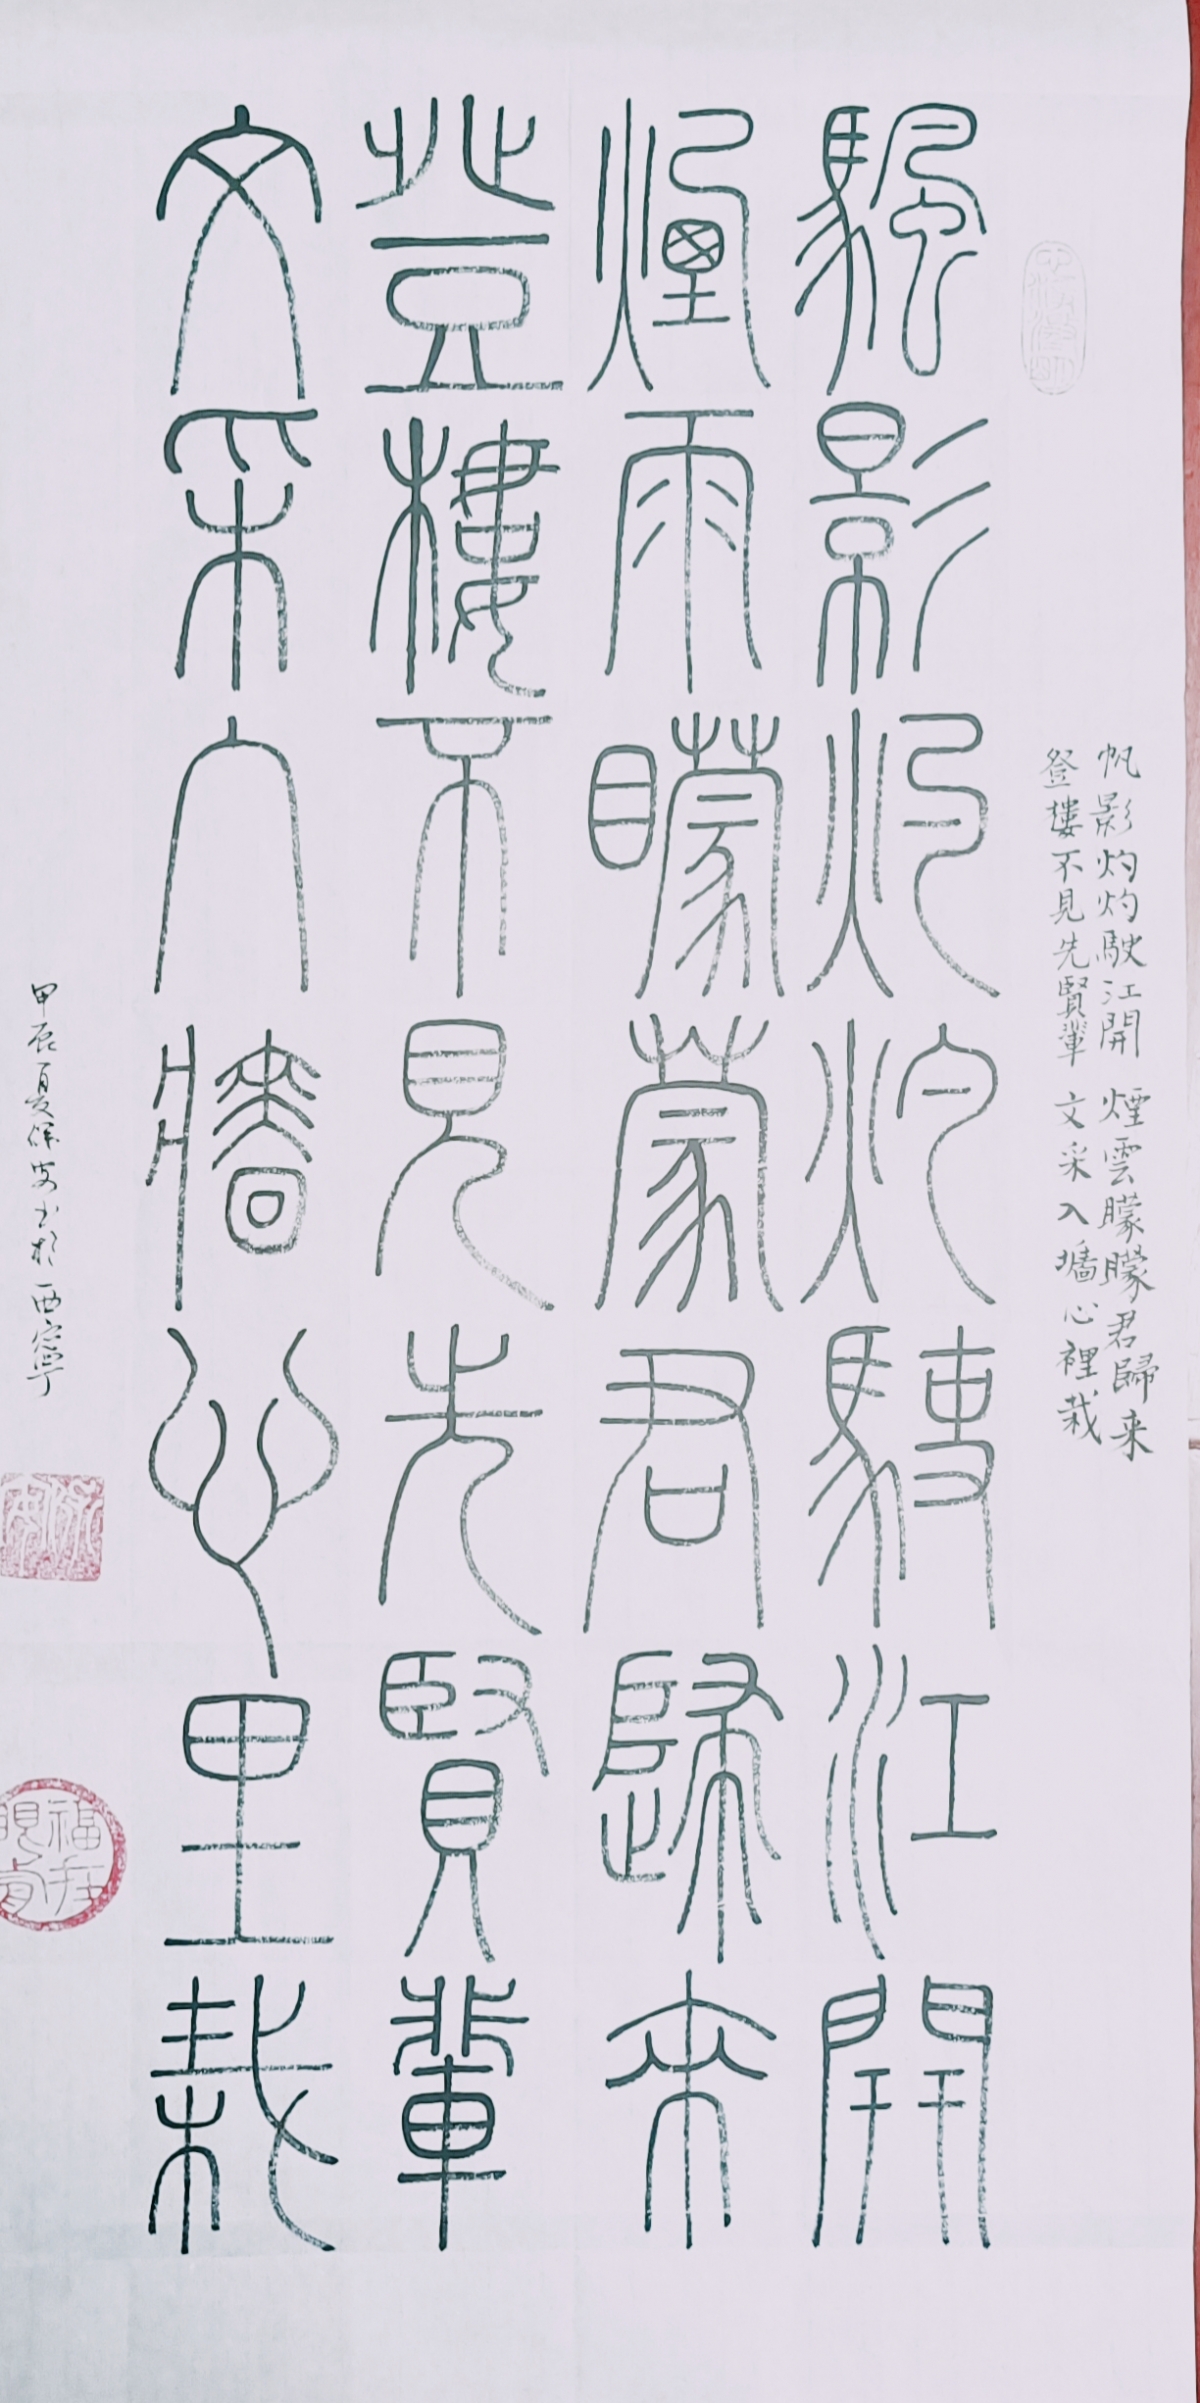 帆影灼灼駛江開 煙雲朦朦君歸来
登樓不見先賢輩 文采入墻心裡栽
颿影灼灼駛江開
煙雨矇蒙君歸來
登樓不見先賢輩
文采入牆心里栽
甲辰夏保安书於西寧